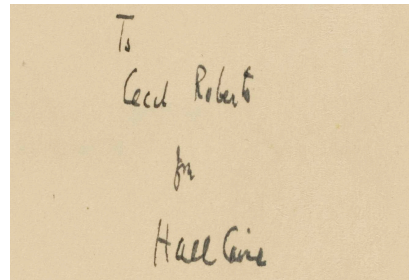 To
Cecil Roberts
from
Hall Caine